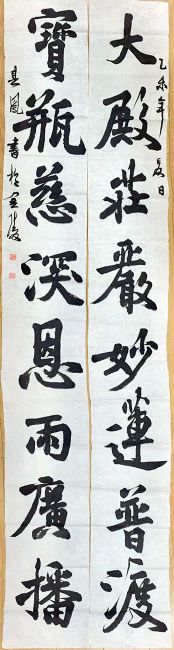 乙未年夏日
大殿莊嚴妙蓮普渡
寶瓶慈深恩雨廣播
風書於金陵